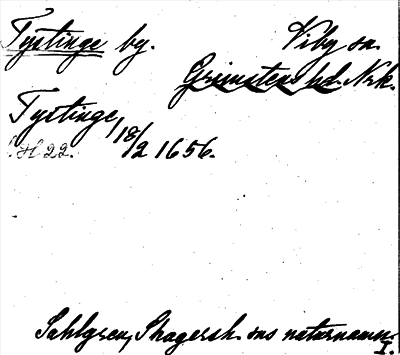 Tystinge by. Viby sn.
Grimstens hd. Nrk.
Tystinge, 18/2 1656.
H 22.
Sahlgren, Skagersh. sns naturnamn
I.